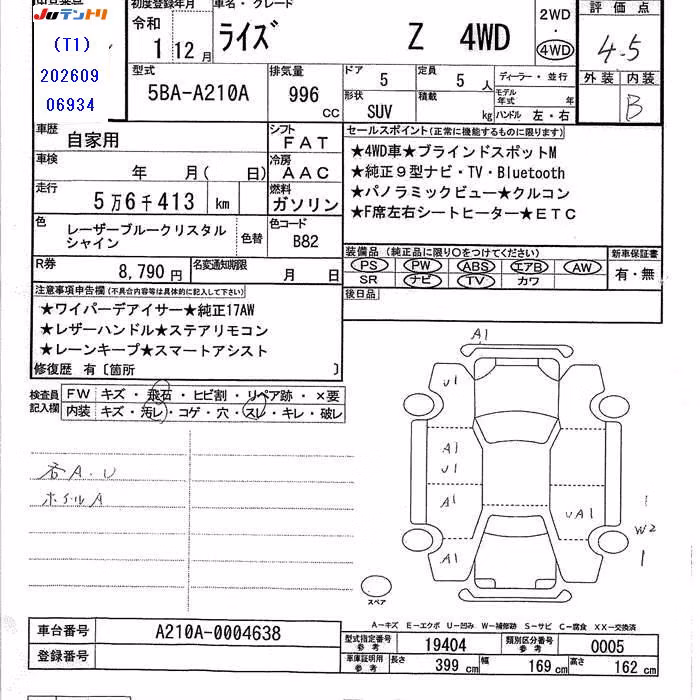 JUテントリ
(T1)
202609
06934
初度登録年月
令和
1 12 月
車名・グレード
ライズ Z 4WD
2WD
・
4WD
評価点
4.5
外装 内装
B
型式
5BA-A210A
排気量
996 cc
ドア
5
定員
5 人
形状
SUV
積載
kg
ディーラー・並行
モデル年式 年
ハンドル 左・右
車歴
自家用
シフト
FAT
車検
年 月( 日)
冷房
AAC
走行
5万6千413 km
燃料
ガソリン
色
レーザーブルークリスタル
シャイン
色替
色コード
B82
R券
8,790 円
名変通知期限
月 日
セールスポイント(正常に機能するものに限ります)
★4WD車★ブラインドスポットM
★純正9型ナビ・TV・Bluetooth
★パノラミックビュー★クルコン
★F席左右シートヒーター★ETC
装備品 (純正品に限り〇をつけてください)
PS PW ABS エアB AW
SR ナビ TV カワ
新車保証書
有・無
後日品
注意事項申告欄(不具合内容等は具体的に記入して下さい)
★ワイパーデアイサー★純正17AW
★レザーハンドル★ステアリモコン
★レーンキープ★スマートアシスト
修復歴 有〔箇所 〕
検査員
記入欄
FW キズ・飛石・ヒビ割・リペア跡・×要
内装 キズ・汚レ・コゲ・穴・スレ・キレ・破レ
各A.U
ホイルA
A1
U1
A1
U1
A1
A1
UA1
W2
スペア
A−キズ E−エクボ U−凹み W−補修跡 S−サビ C−腐食 XX−交換済
車台番号
A210A-0004638
登録番号
型式指定番号
参考
19404
類別区分番号
参考
0005
車庫証明用
参考
長さ 399 cm 幅 169 cm 高さ 162 cm